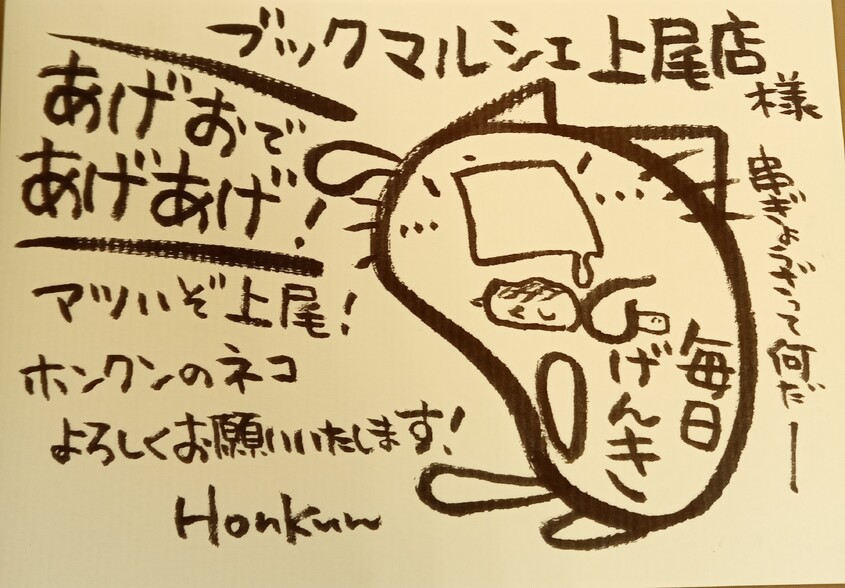 ブックマルシェ上尾店様
あげおで
あげあげ!
マツいぞ上尾!
ホンクンのネコ
よろしくお願いいたします!
Honkun
毎日
げんき
串ぎょうざって何だー